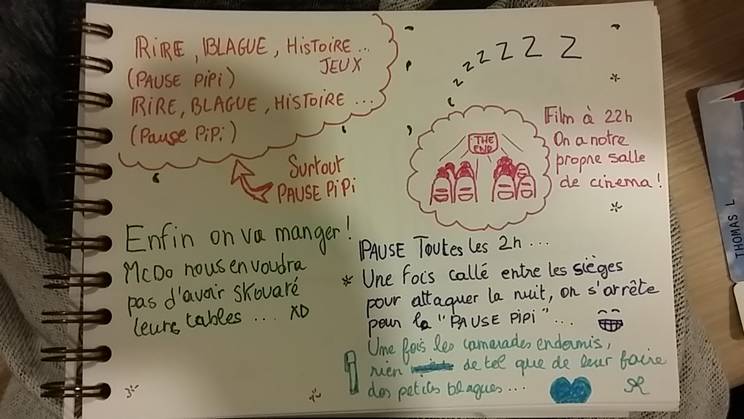 RIRE, BLAGUE, HisToiRE...
JEUX
(PAUSE PiPi)
RIRE, BLAGUE, HISTOIRE ...
(Pause PiPi)
SuRTouT
PAUSE PiPi
z z z z Z Z Z
THE
END
Film à 22h
On a notre
propre salle
de cinema !
Enfin on va manger !
McDo nous en voudra
pas d'avoir skouaré
leurs tables ... XD
PAUSE Toutes les 2h ...
* Une fois callé entre les sièges
pour attaquer la nuit, on s'arrête
pour la "PAUSE PiPi" ...
Une fois les camarades endormis,
rien de tel que de leur faire
des petits blagues ...
THOMAS L